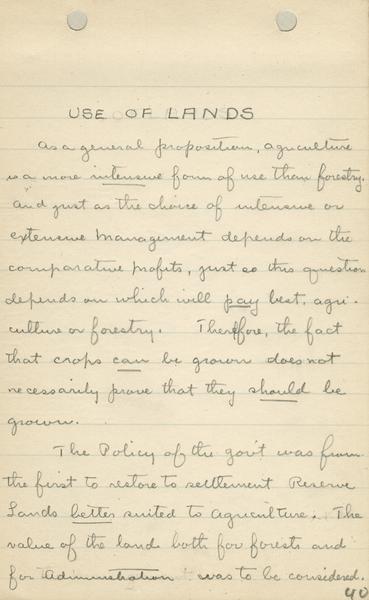 USE OF LANDS
As a general proposition, agriculture
is a more intensive form of use than forestry.
And just as the choice of intensive or
extensive management depends on the
comparative profits, just so this question
depends on which will pay best, agri-
culture or forestry. Therefore, the fact
that crops can be grown does not
necessarily prove that they should be
grown.
The Policy of the gov't was from
the first to restore to settlement Reserve
Lands better suited to agriculture. The
value of the land both for forests and
for Administration was to be considered.
40